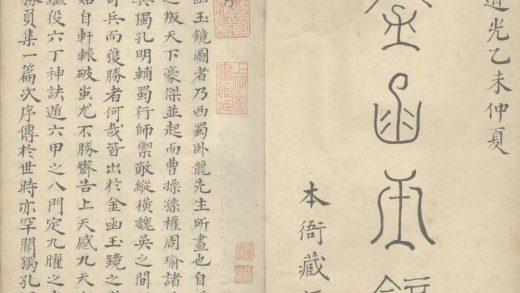 道光乙未仲夏
金函玉鏡
本衙藏
序
函玉鏡圖者乃西蜀卧龍先生所畫也自
之叛天下豪傑並起而曹操孫權周瑜諸
獨孔明輔蜀行師禦敵縱橫魏吳之間
奇兵而獲勝者何哉皆出於金函玉鏡之
始自軒轅破蚩尤不勝齋告上天感九天
役六丁神訣遁六甲之八門定九曜之
勝員集一篇次序傳於世時亦罕聞獨孔